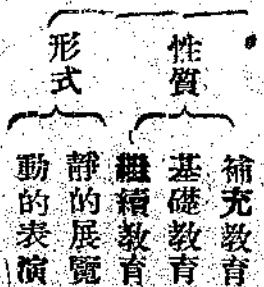 性質
補充教育
基礎教育
繼續教育
形式
靜的展覽
動的表演